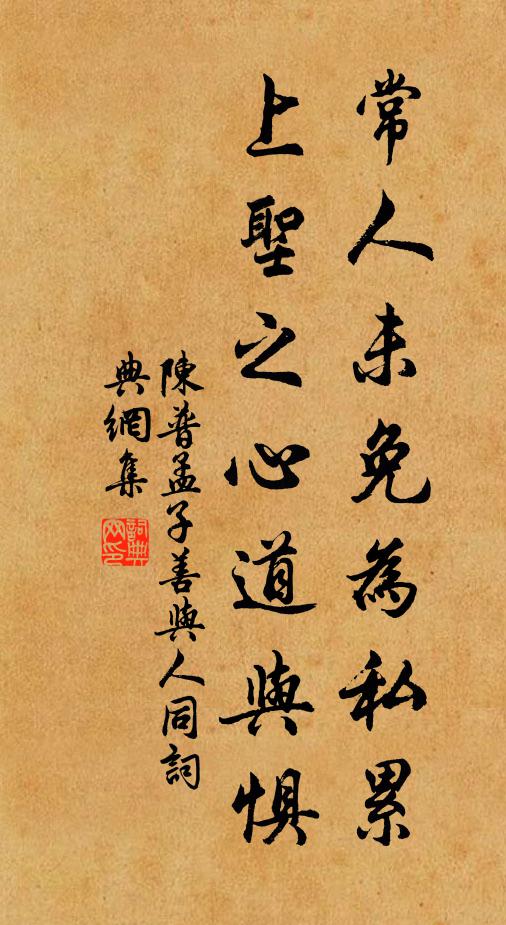 常人未免為私累
上聖之心道與惧
陳普孟子善與人同詞
典網集
詞典網印